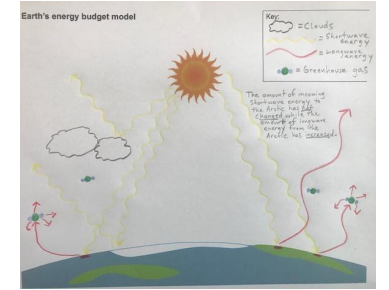 Earth's energy budget model
Key:
= Clouds
= Shortwave
energy
= Longwave
energy
= Greenhouse gas
The amount of incoming
Shortwave energy to
the Arctic has not
changed while the
amount of longwave
energy from the
Arctic has increased.